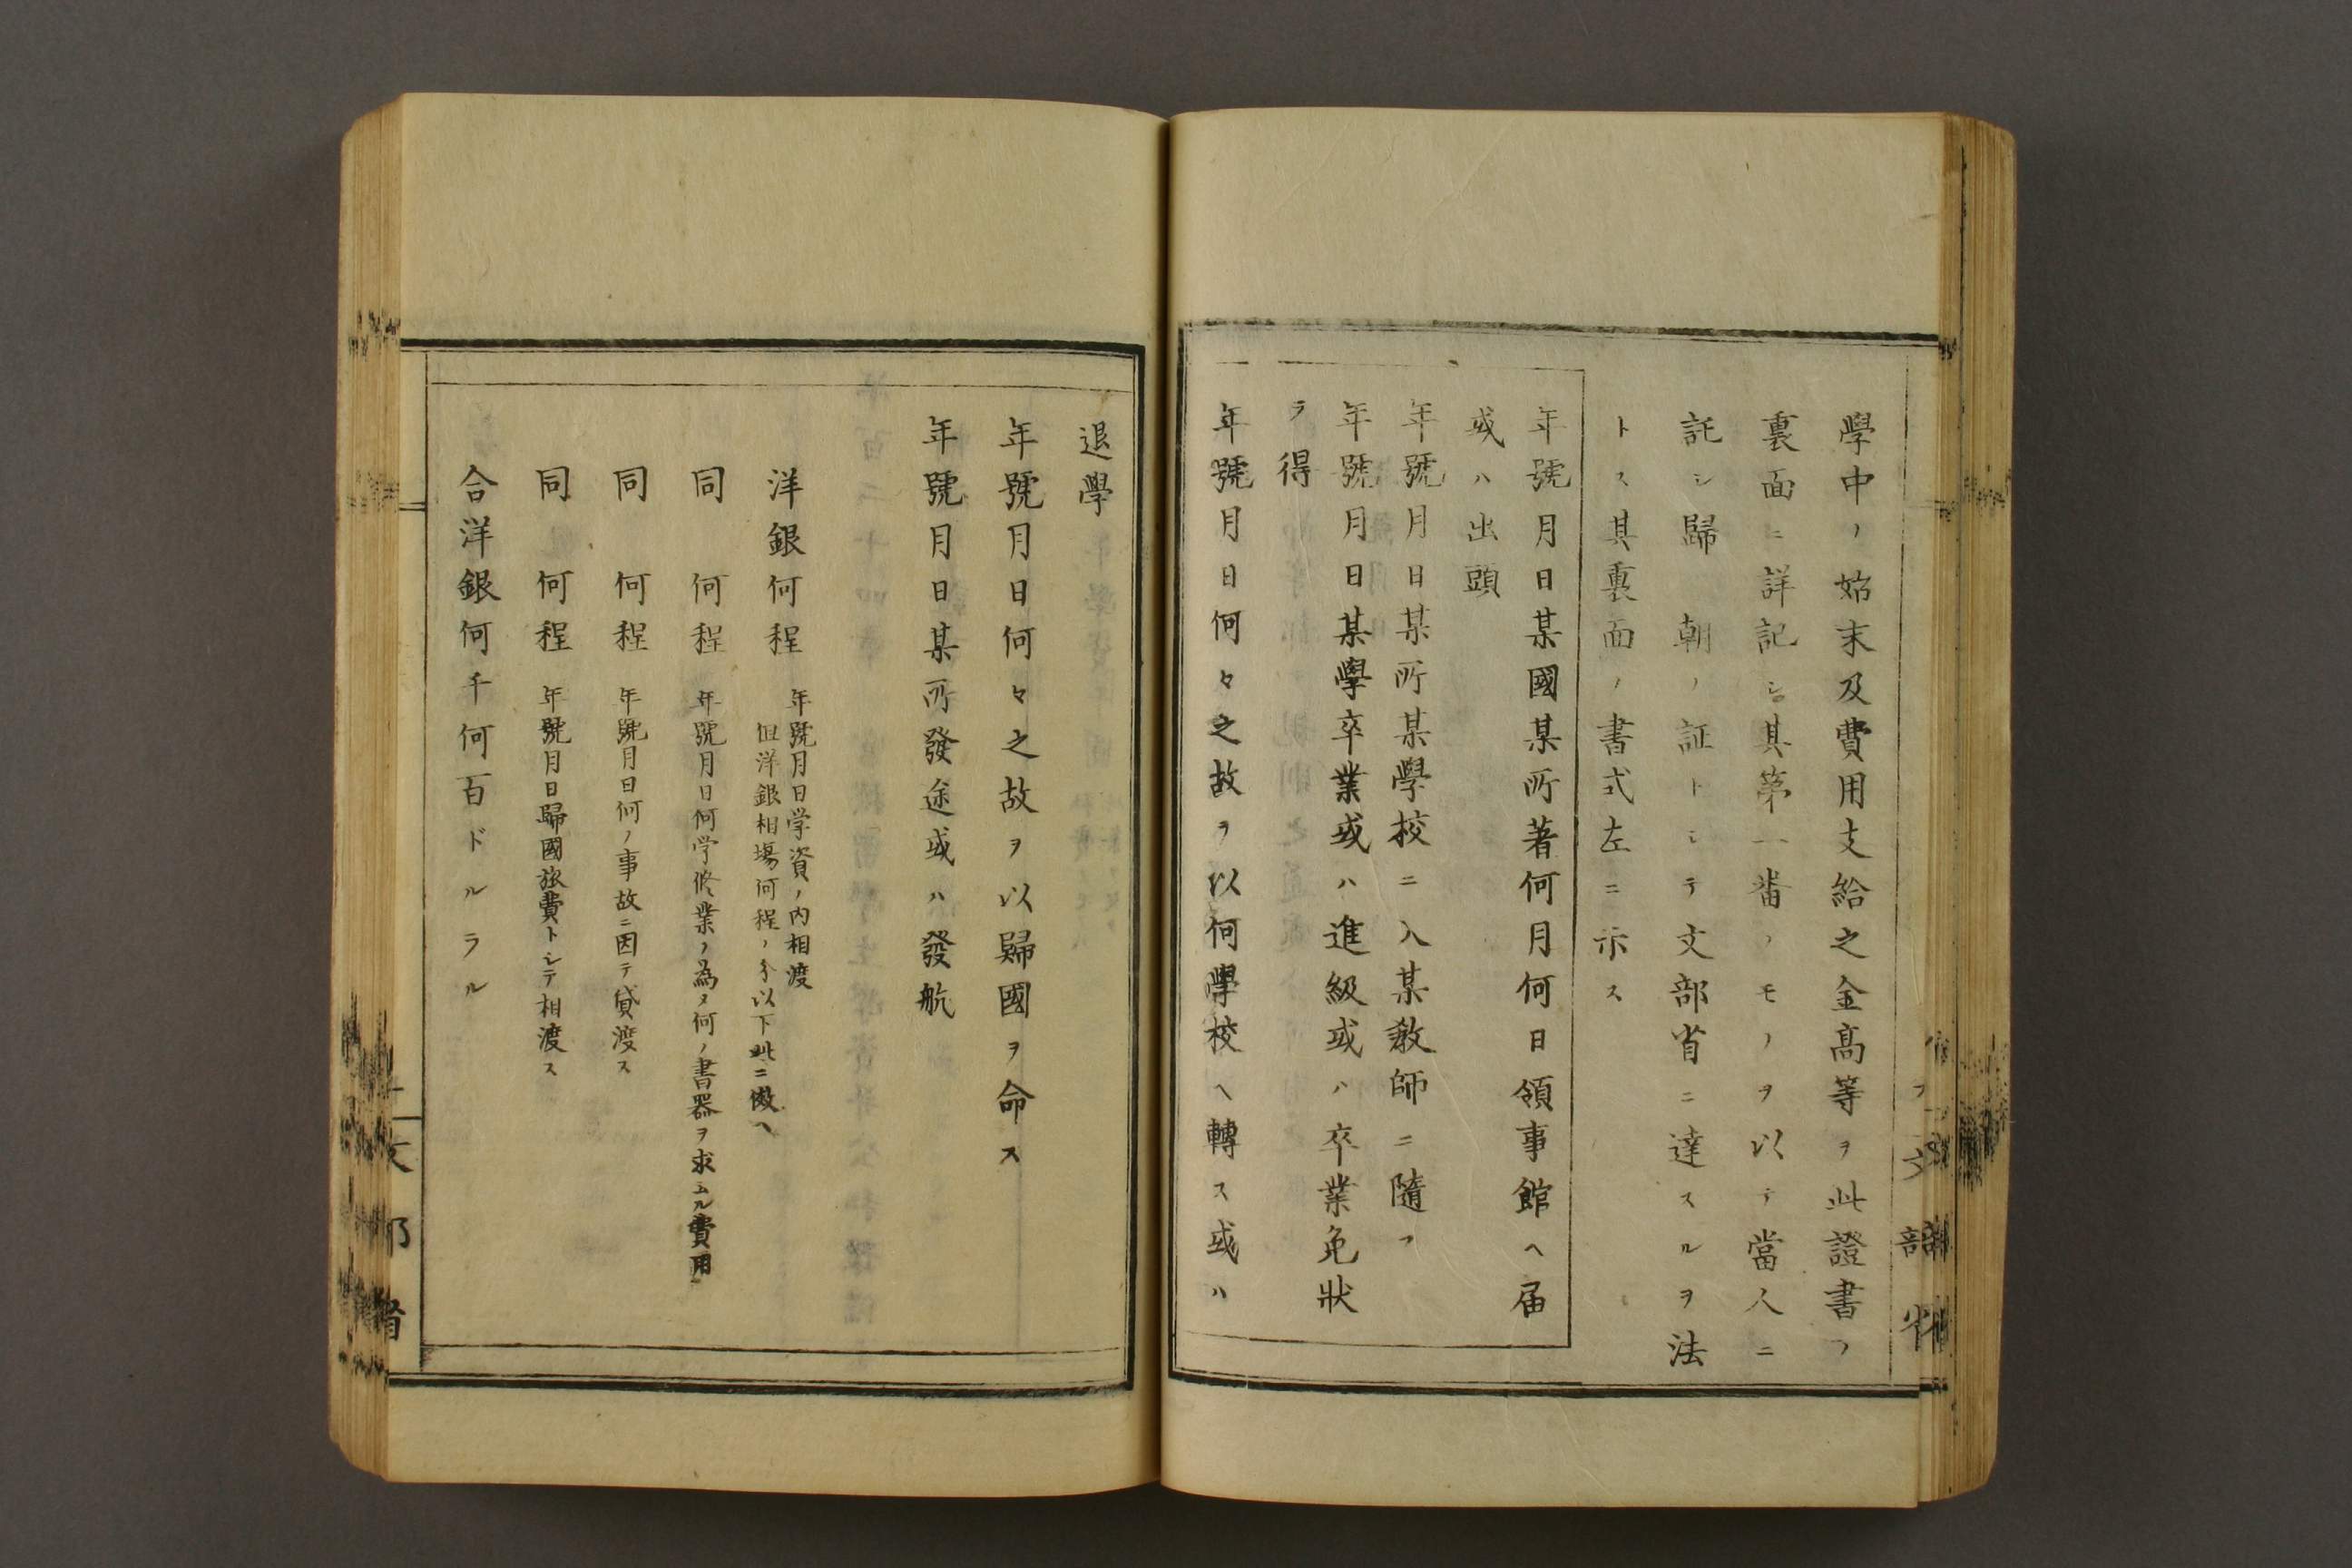 學中ノ始末及費用支給之金高等ヲ此證書ノ
裏面ニ詳記シ其第一番ノモノヲ以テ當人ニ
託シ歸朝ノ証トシテ文部省ニ達スルヲ法
トス其裏面ノ書式左ニ示ス
年號月日某國某所著何月何日領事館ヘ届
或ハ出頭
年號月日某所某學校ニ入某敎師ニ隨フ
年號月日某學卒業或ハ進級或ハ卒業免狀
ヲ得
年號月日何々之故ヲ以何學校ヘ轉ス或ハ
退學
年號月日何々之故ヲ以歸國ヲ命ス
年號月日某所發途或ハ發航
洋銀何程 年號月日学資ノ内相渡
但洋銀相場何程ノ分以下此ニ倣ヘ
同 何程 年號月日何学修業ノ為メ何ノ書器ヲ求ムル費用
同 何程 年號月日何ノ事故ニ因テ貸渡ス
同 何程 年號月日歸國旅費トシテ相渡ス
合洋銀何千何百ドルラル
文部省